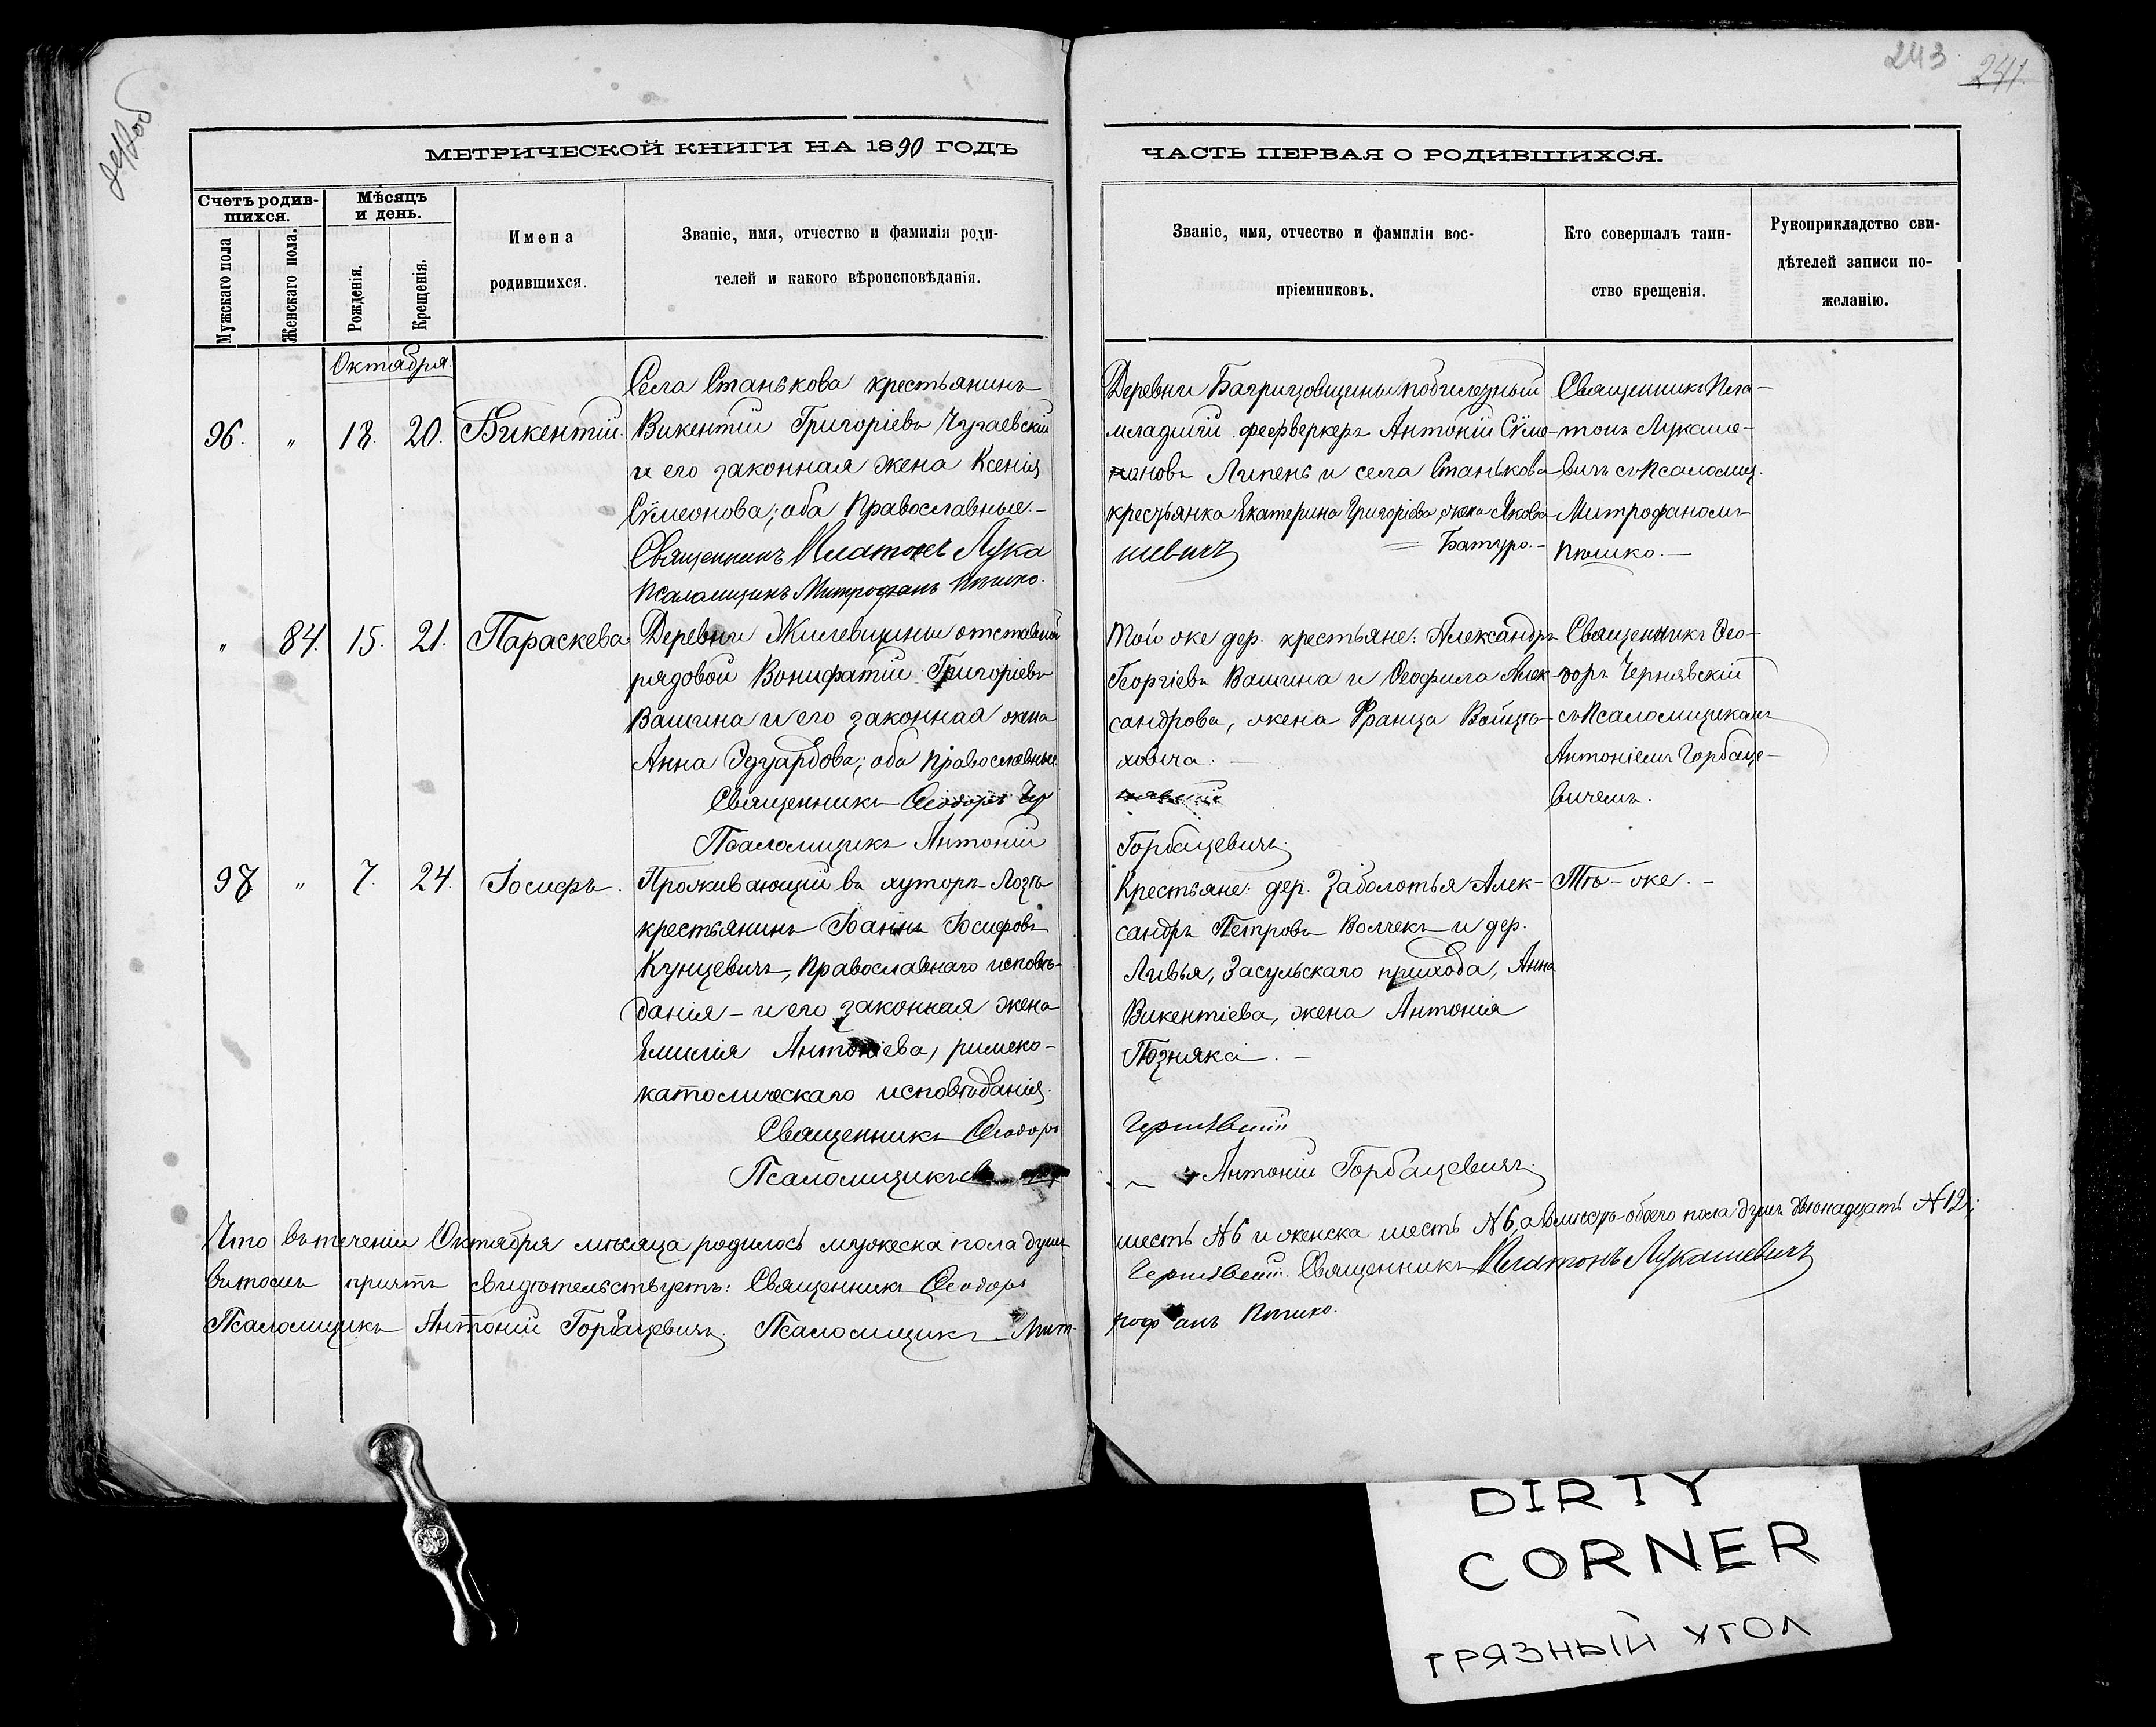 243
241.
МЕТРИЧЕСКОЙ КНИГИ НА 1890 ГОДЪ
ЧАСТЬ ПЕРВАЯ О РОДИВШИХСЯ.
Счетъ родив-
шихся.
Мужскаго пола
Женскаго пола.
Мѣсяцъ
и день.
Рожденія.
Крещенія.
Имена
родившихся.
Званіе, имя, отчество и фамилія роди-
телей и какого вѣроисповѣданія.
Званіе, имя, отчество и фамиліи вос-
пріемниковъ.
Кто совершалъ таин-
ство крещенія.
Рукоприкладство сви-
дѣтелей записи по-
желанію.
Октября.
96. " 18. 20. Викентій.
Села Станькова крестьянинъ
Викентій Григоріевъ Чугаевскій
и его законная жена Ксенія
Сѵмеонова; оба Православные.-
Священникъ Платонъ Лука
Псаломщикъ Митрофанъ
Деревни
младшій фейерверкеръ Антоній Сѵме-
оновъ Липень и села Станькова
крестьянка Екатерина Григоріева, жена Якова
Батуро.-
шевичъ
Священникъ Пла-
тонъ Лукаше-
вичъ съ Псаломщ.
Митрофаномъ
" 84. 15. 21. Параскева
Деревни Жилевщины отставной
рядовой Вонифатій Григоріевъ
Вашина и его законная жена
Анна Эдуардова; оба Православные.
Священникъ Ѳеодоръ Чер
Псаломщикъ Антоній
Той же дер. крестьяне: Александръ
Георгіевъ Вашина и Ѳеофила Алек-
сандрова, жена Франца Войцѣ-
ховича. -
нявскій
Горбацевичъ.
Священникъ Ѳео-
доръ Чернявскій
съ Псаломщикомъ
Антоніемъ Горбаце-
вичемъ.
97 " 7. 24. Іосифъ.
Проживающій въ хуторѣ Лозѣ
крестьянинъ Іоаннъ Іосифовъ
Кунцевичъ, Православнаго исповѣ-
данія - и его законная жена
Емилія Антоніева, римско-
католическаго исповѣданія.
Священникъ Ѳеодоръ
Псаломщикъ
Крестьяне: дер. Заболотья Алек-
сандръ Петровъ Волчекъ и дер.
Ливья, Засульскаго прихода, Анна
Викентіева, жена Антонія
Позняка. -
Чернявскій
Антоній Горбацевичъ.
Тѣ-же. -
Что въ теченіи Октября мѣсяца родилось мужеска пола душъ
шесть №6 и женска шесть №6, а вмѣстѣ обоего пола душъ двѣнадцать №12;
въ томъ причтъ свидѣтельствуетъ: Священникъ Ѳеодоръ
Чернявскій. Священникъ Платонъ Лукашевичъ
Псаломщикъ Антоній Горбацевичъ. Псаломщикъ Мит-
рофанъ
DIRTY
CORNER
ГРЯЗНЫЙ УГОЛ